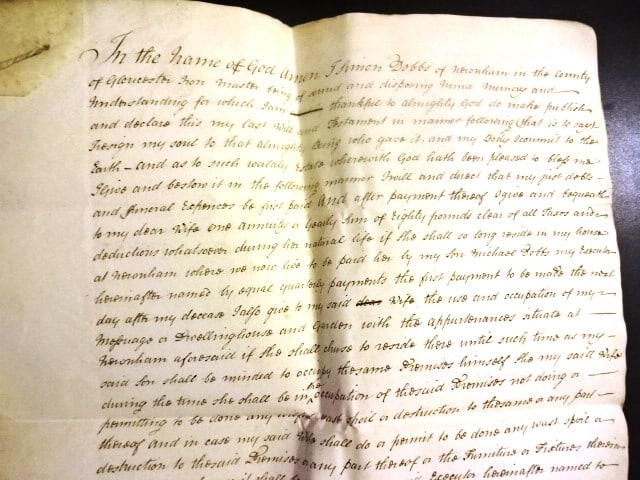 In the Name of God Amen I Simon Dobbs of Newnham in the County
of Gloucester Iron Master being of sound and disposing Mind Memory and
Understanding for which I am thankful to Almighty God do make publish
and declare this my last Will and Testament in manner following that is to say I
resign my soul to that almighty Being who gave it and my Body I commit to the
Earth - and as to such worldly Estate wherewith God hath been pleased to bless me
I give and bestow it in the following manner I will and direct that my just debts
and funeral Expences be first paid And after payment thereof I give and bequeath
to my dear Wife one annuity or yearly sum of Eighty pounds clear of all Taxes and
deductions whatsoever during her natural life if she shall so long reside in my house
at Newnham where we now live to be paid her by my Son Michael Dobbs my Executor
hereinafter named by equal quarterly payments the first payment to be made the next
day after my decease I also give to my said dear Wife the use and occupation of my
Messuage or Dwellinghouse and Garden with the appurtenances situate at
Newnham aforesaid if she shall chuse to reside there until such time as my
said Son shall be minded to occupy the same Premises himself She my said Wife
during the time she shall be in the occupation of the said Premises not doing or
permitting to be done any wast spoil or destruction to the same or any part
thereof and in case my said Wife shall do or permit to be done any wast spoil or
destruction to the said Premises or any part thereof or the Furniture or Fixtures therein
Executor hereinafter named to